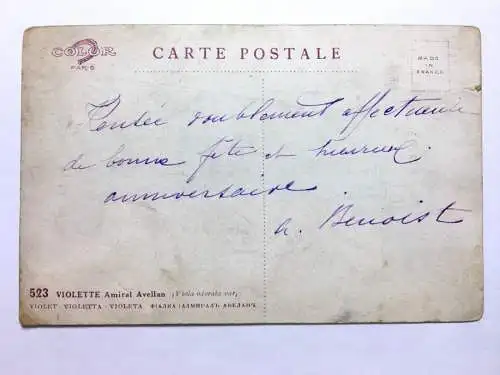 COLOR
PARIS
CARTE POSTALE
MADE
IN
FRANCE
Pensée doublement affectueuse
de bonne fête et heureux
anniversaire
A. Benoist
523 VIOLETTE Amiral Avellan (Viola odorata var.)
VIOLET - VIOLETTA - VIOLETA - ФІАЛКА (АДМИРАЛЪ АВЕЛАНЪ